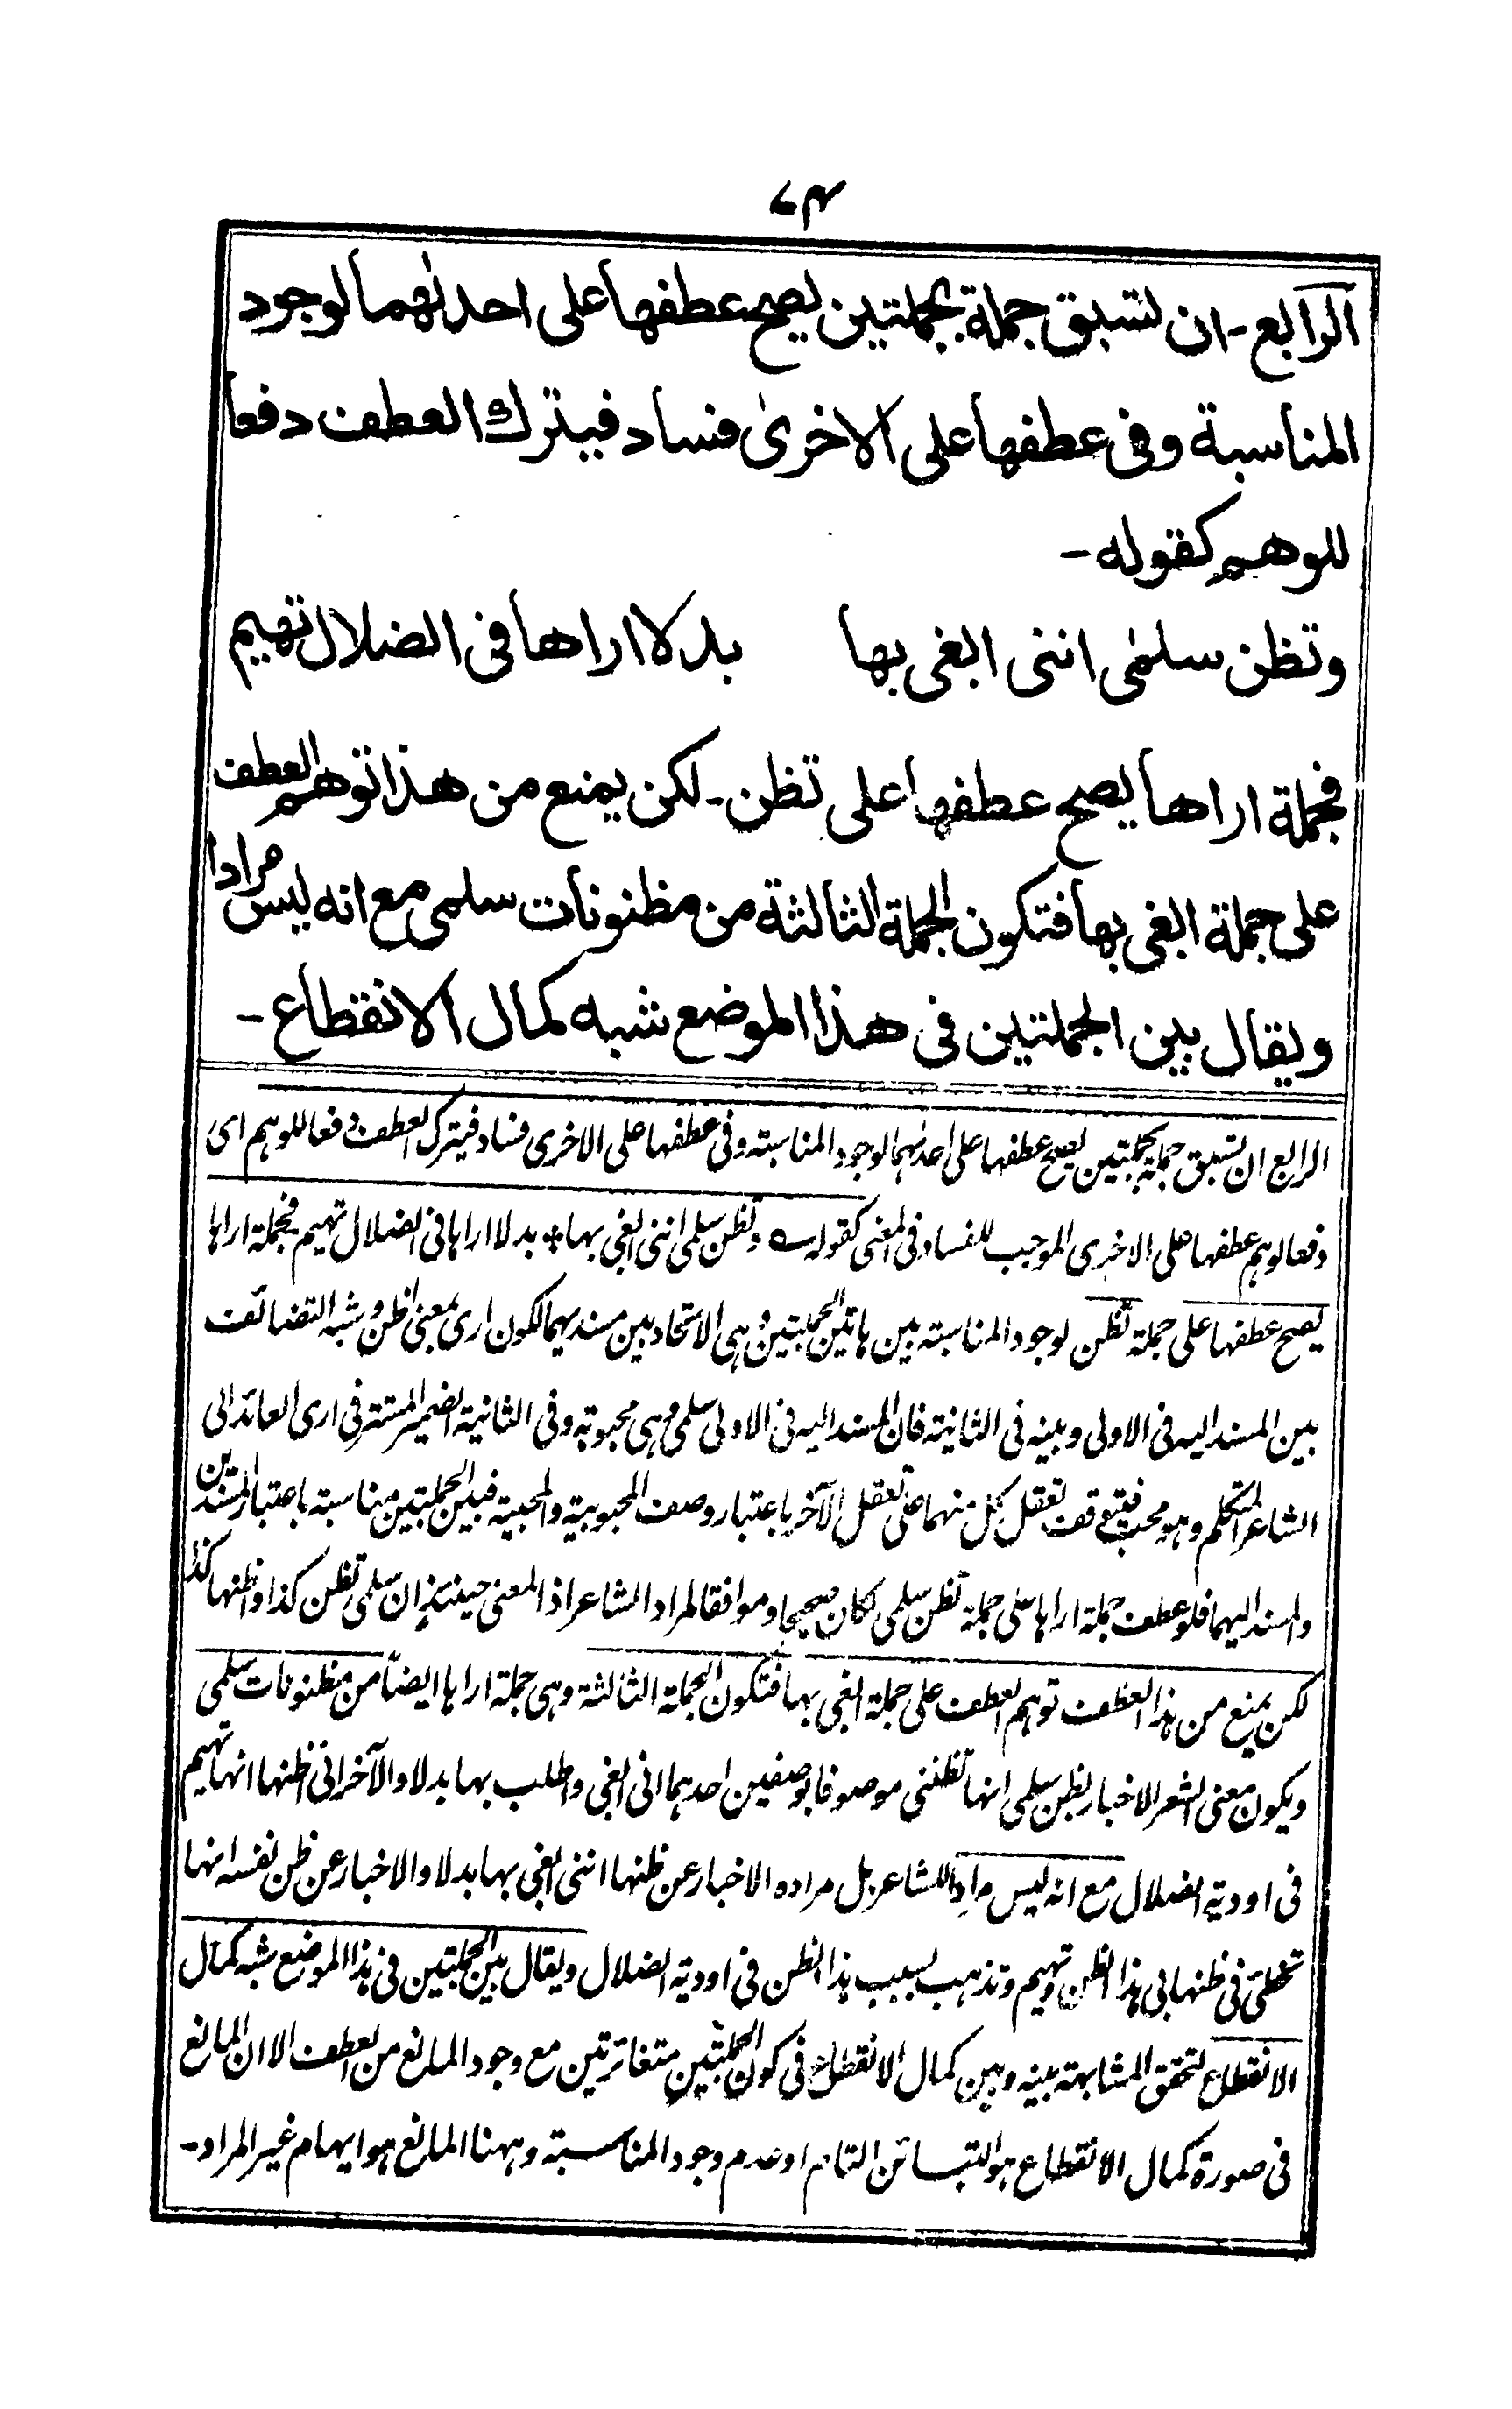 ٧٤
الرابع - ان تسبق جملة بجملتين يصح عطفها على احدٰهما لوجود
المناسبة وفى عطفها على الاخرىٰ فساد فيترك العطف دفعا
للوهم كقوله -
وتظن سلمٰى اننى ابغى بها بدلا اراها فى الضلال تهيم
فجملة اراها يصح عطفها على تظن - لكن يمنع من هذا توهم العطف
على جملة ابغى بها فتكون الجملة الثالثة من مظنونات سلمى مع انه ليس مرادا
ويقال بين الجملتين فى هذا الموضع شبه كمال الانقطاع -
الرابع ان تسبق جملة بجملتين يصح عطفها على احدٰهما لوجود المناسبة وفى عطفها على الاخرى فساد فيترك العطف دفعا للوهم اى
دفعا لوهم عطفها على الاخرى الموجب للفساد فى المعنى كقوله ؎ وتظن سلمى اننى ابغى بها * بدلا اراها فى الضلال تهيم فجملة اراها
يصح عطفها على جملة تظن لوجود المناسبة بين هاتين الجملتين وهى الاتحاد بين مسنديهما لكون ارى بمعنى اظن وشبه التضائف
بين المسند اليه فى الاولى وبينه فى الثانية فان المسند اليه فى الاولى سلمى وهى محبوبة وفى الثانية الضمير المستتر فى ارى العائد الى
الشاعر المتكلم وهو محب فيتوقف تعقل كل منهما على تعقل الآخر باعتبار وصف المحبوبية والمحبية فبين الجملتين مناسبة باعتبار المسندين
والمسند اليهما فلو عطف جملة اراها على جملة تظن سلمى لكان صحيحا وموافقا لمراد الشاعر اذ المعنى حينئذ ان سلمى تظن كذا واظنها كذا
لكن يمنع من هذا العطف توهم العطف على جملة ابغى بها فتكون الجملة الثالثة وهى جملة اراها ايضاً من مظنونات سلمى
ويكون معنى الشعر الاخبار بظن سلمى انها تظننى موصوفا بوصفين احدهما انى ابغى واطلب بها بدلا والآخر انى اظنها انها تهيم
فى اودية الضلال مع انه ليس مرادا للشاعر بل مراده الاخبار عن ظنها اننى ابغى بها بدلا والاخبار عن ظن نفسه انها
تخطئ فى ظنها بى هذا الظن وتهيم وتذهب بسبب هذا الظن فى اودية الضلال ويقال بين الجملتين فى هذا الموضع شبه كمال
الانقطاع لتحقق المشابهة بينه وبين كمال الانقطاع فى كون الجملتين متغائرتين مع وجود المانع من العطف الا ان المانع
فى صورة كمال الانقطاع هو التبائن التام او عدم وجود المناسبة وههنا المانع هو ايهام غير المراد -